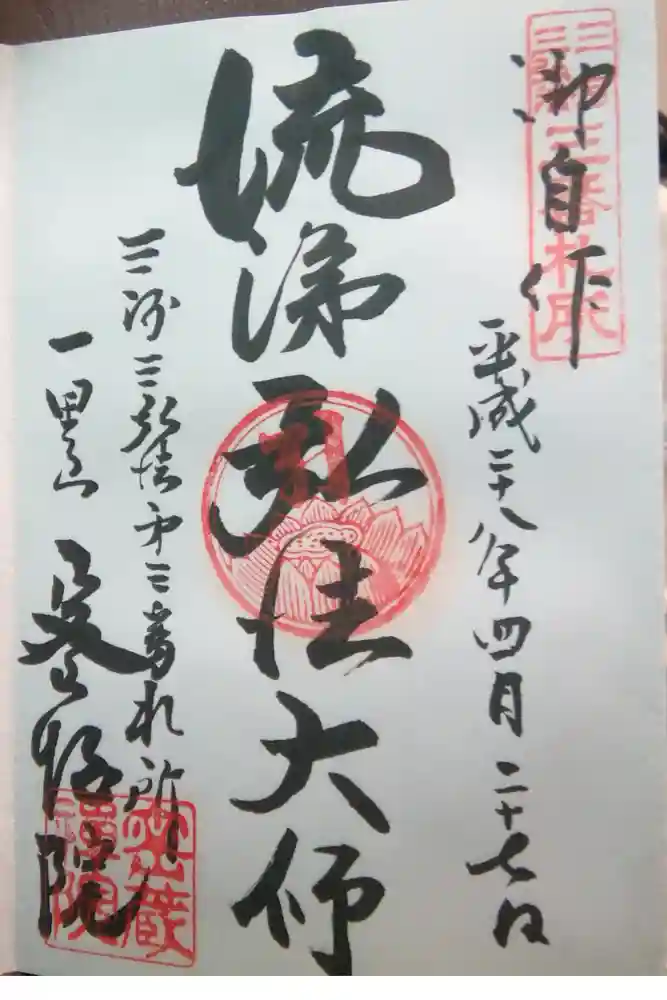 御自作
三番札所
平成二十八年四月二十七日
流涕弘法大師
三河三弘法第三番札所
一里山 密蔵院
密蔵
禅院